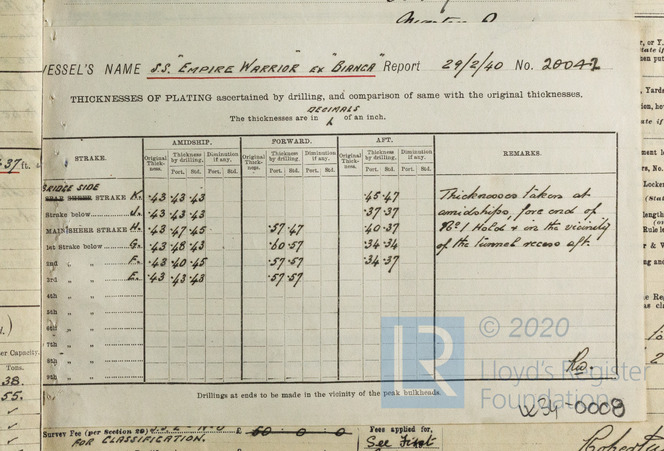 VESSEL'S NAME S.S. "EMPIRE WARRIOR" EX "BIANCA" Report 29/2/40 No. 20042
THICKNESSES OF PLATING ascertained by drilling, and comparison of same with the original thicknesses.
DECIMALS
The thicknesses are in of an inch.
STRAKE. AMIDSHIP. FORWARD. AFT. REMARKS.
Original Thickness. Thickness by drilling. Diminution if any. Original Thickness. Thickness by drilling. Diminution if any. Original Thickness. Thickness by drilling. Diminution if any.
Port. Std. Port. Std. Port. Std. Port. Std. Port. Std. Port. Std.
BRIDGE SIDE
STRAKE K. .43 .43 .43 .45 .47
Strake below J. .43 .43 .43 .37 .37
MAIN SHEER STRAKE H. .43 .47 .45 .57 .47 .40 .37
1st Strake below G. .43 .48 .43 .60 .57 .34 .34
2nd " " F. .43 .40 .45 .57 .57 .34 .37
3rd " " E. .43 .43 .43 .57 .57
4th " "
5th " "
6th " "
7th " "
8th " "
9th " "
Thicknesses taken at
amidships, fore end of
No 1 Hold & in the vicinity
of the tunnel recess aft.
Drillings at ends to be made in the vicinity of the peak bulkheads.
© 2020
LR Lloyd's Register
Foundation
W234-0008
Survey Fee (per Section 29) £ 60 0 0 Fees applied for,
FOR CLASSIFICATION. See First
37 ft.
er Capacity.
Tons.
38.
55.